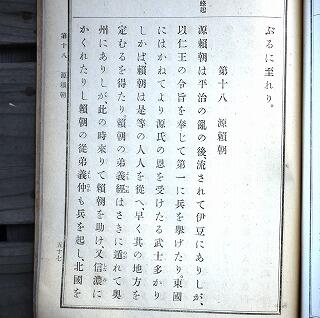 ぶるに至れり。
第十八 源賴朝
源賴朝は平治の亂の後、流されて伊豆にありしが、
以仁王の令旨を奉じて第一に兵を擧げたり。東國
にはかねてより源氏の恩を受けたる武士多かり
しかば、賴朝は是等の人人を從へ、早く其の地方を
定むるを得たり。賴朝の弟義經はさきに遁れて奧
州にありしが、此の時來りて賴朝を助け、又信濃に
かくれたりし賴朝の從弟義仲も兵を起し、北國を
第十八 源賴朝
五十七